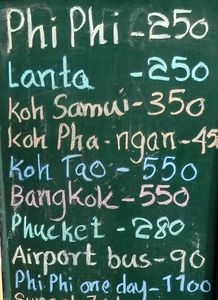 Phi Phi - 250
Lanta - 250
Koh Samui - 350
Koh Pha-ngan - 45
Koh Tao - 550
Bangkok - 550
Phucket - 280
Airport bus - 90
Phi Phi one day - 1100